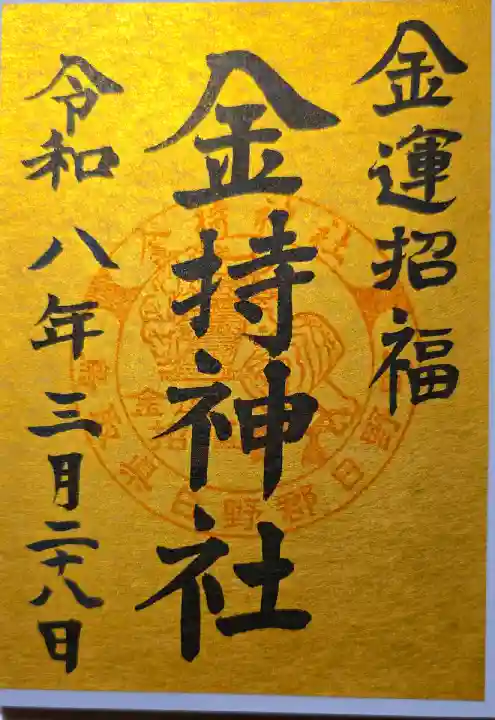 金運招福
金持神社
令和八年三月二十八日